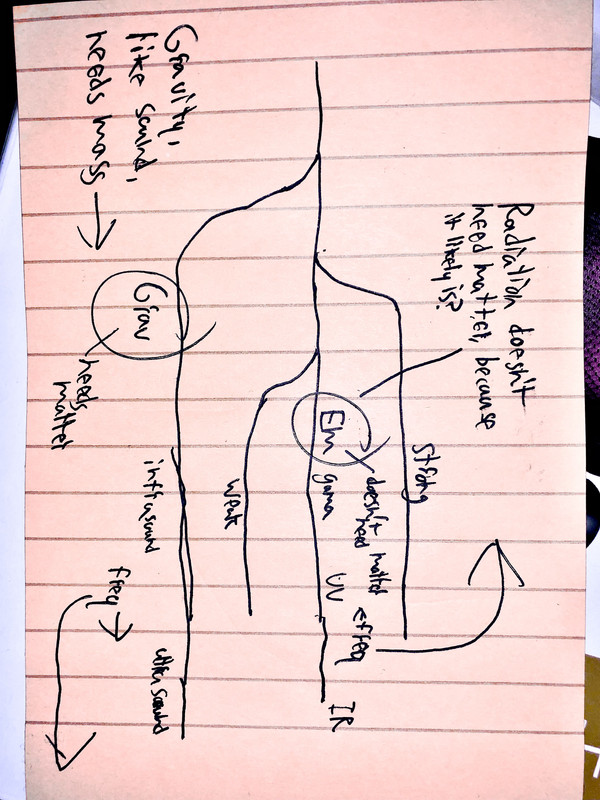 Gravity,
like sound,
needs mass →
Radiation doesn't
need matter, because
it likely is?
Grav
needs
matter
Strong
Em
doesn't
need matter
gama
UV
IR
← freq
weak
infrasound
freq →